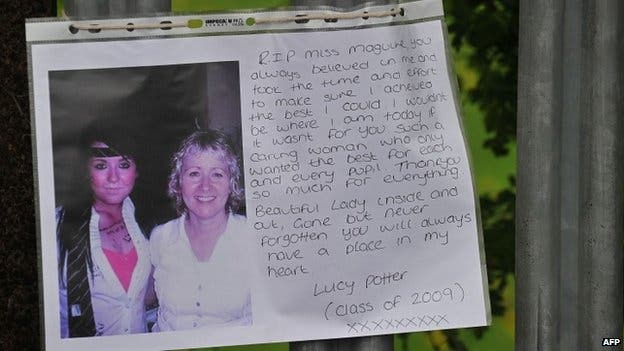 R.I.P miss maguire, you
always believed in me and
took the time and effort
to make sure I achieved
the best I could I wouldnt
be where I am today if
it wasnt for you such a
caring woman who only
wanted the best for each
and every pupil Thankyou
so much for everything.
Beautiful Lady inside and
out, Gone but never
forgotten you will always
have a place in my
heart
Lucy Potter
(class of 2009)
xxxxxxxxx
AFP